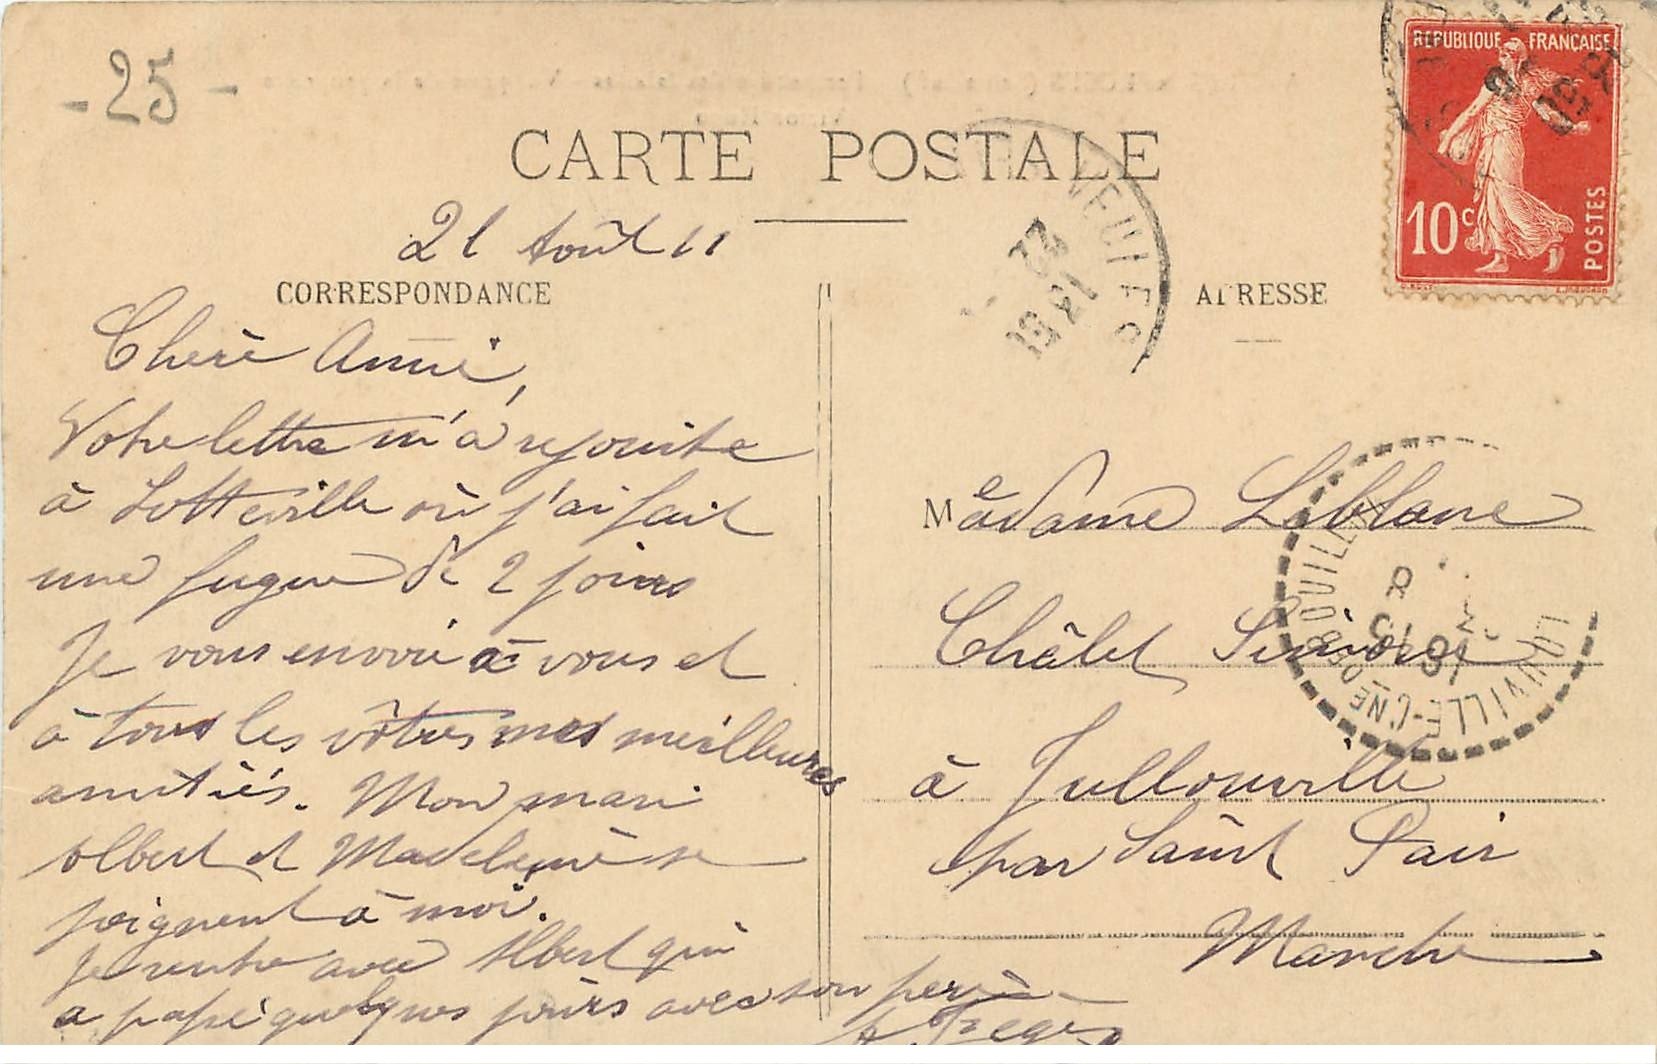 - 25 -
CARTE POSTALE
21 Août 11
CORRESPONDANCE
Chère Amie,
Votre lettre m'a rejointe
à Sotteville où j'ai fait
une fugue de 2 jours
Je vous envoie à vous et
à tous les vôtres mes meilleures
amitiés. Mon mari
Albert et Madeleine se
joignent à moi.
Je rentre avec Albert qui
a passé quelques jours avec son père
REPUBLIQUE FRANÇAISE
10c
POSTES
ADRESSE
Madame Leblanc
Châlet
à Jullouville
par Saint Pair
Manche
VEULES
22
LONVILLE-CNE DE BOUILLON